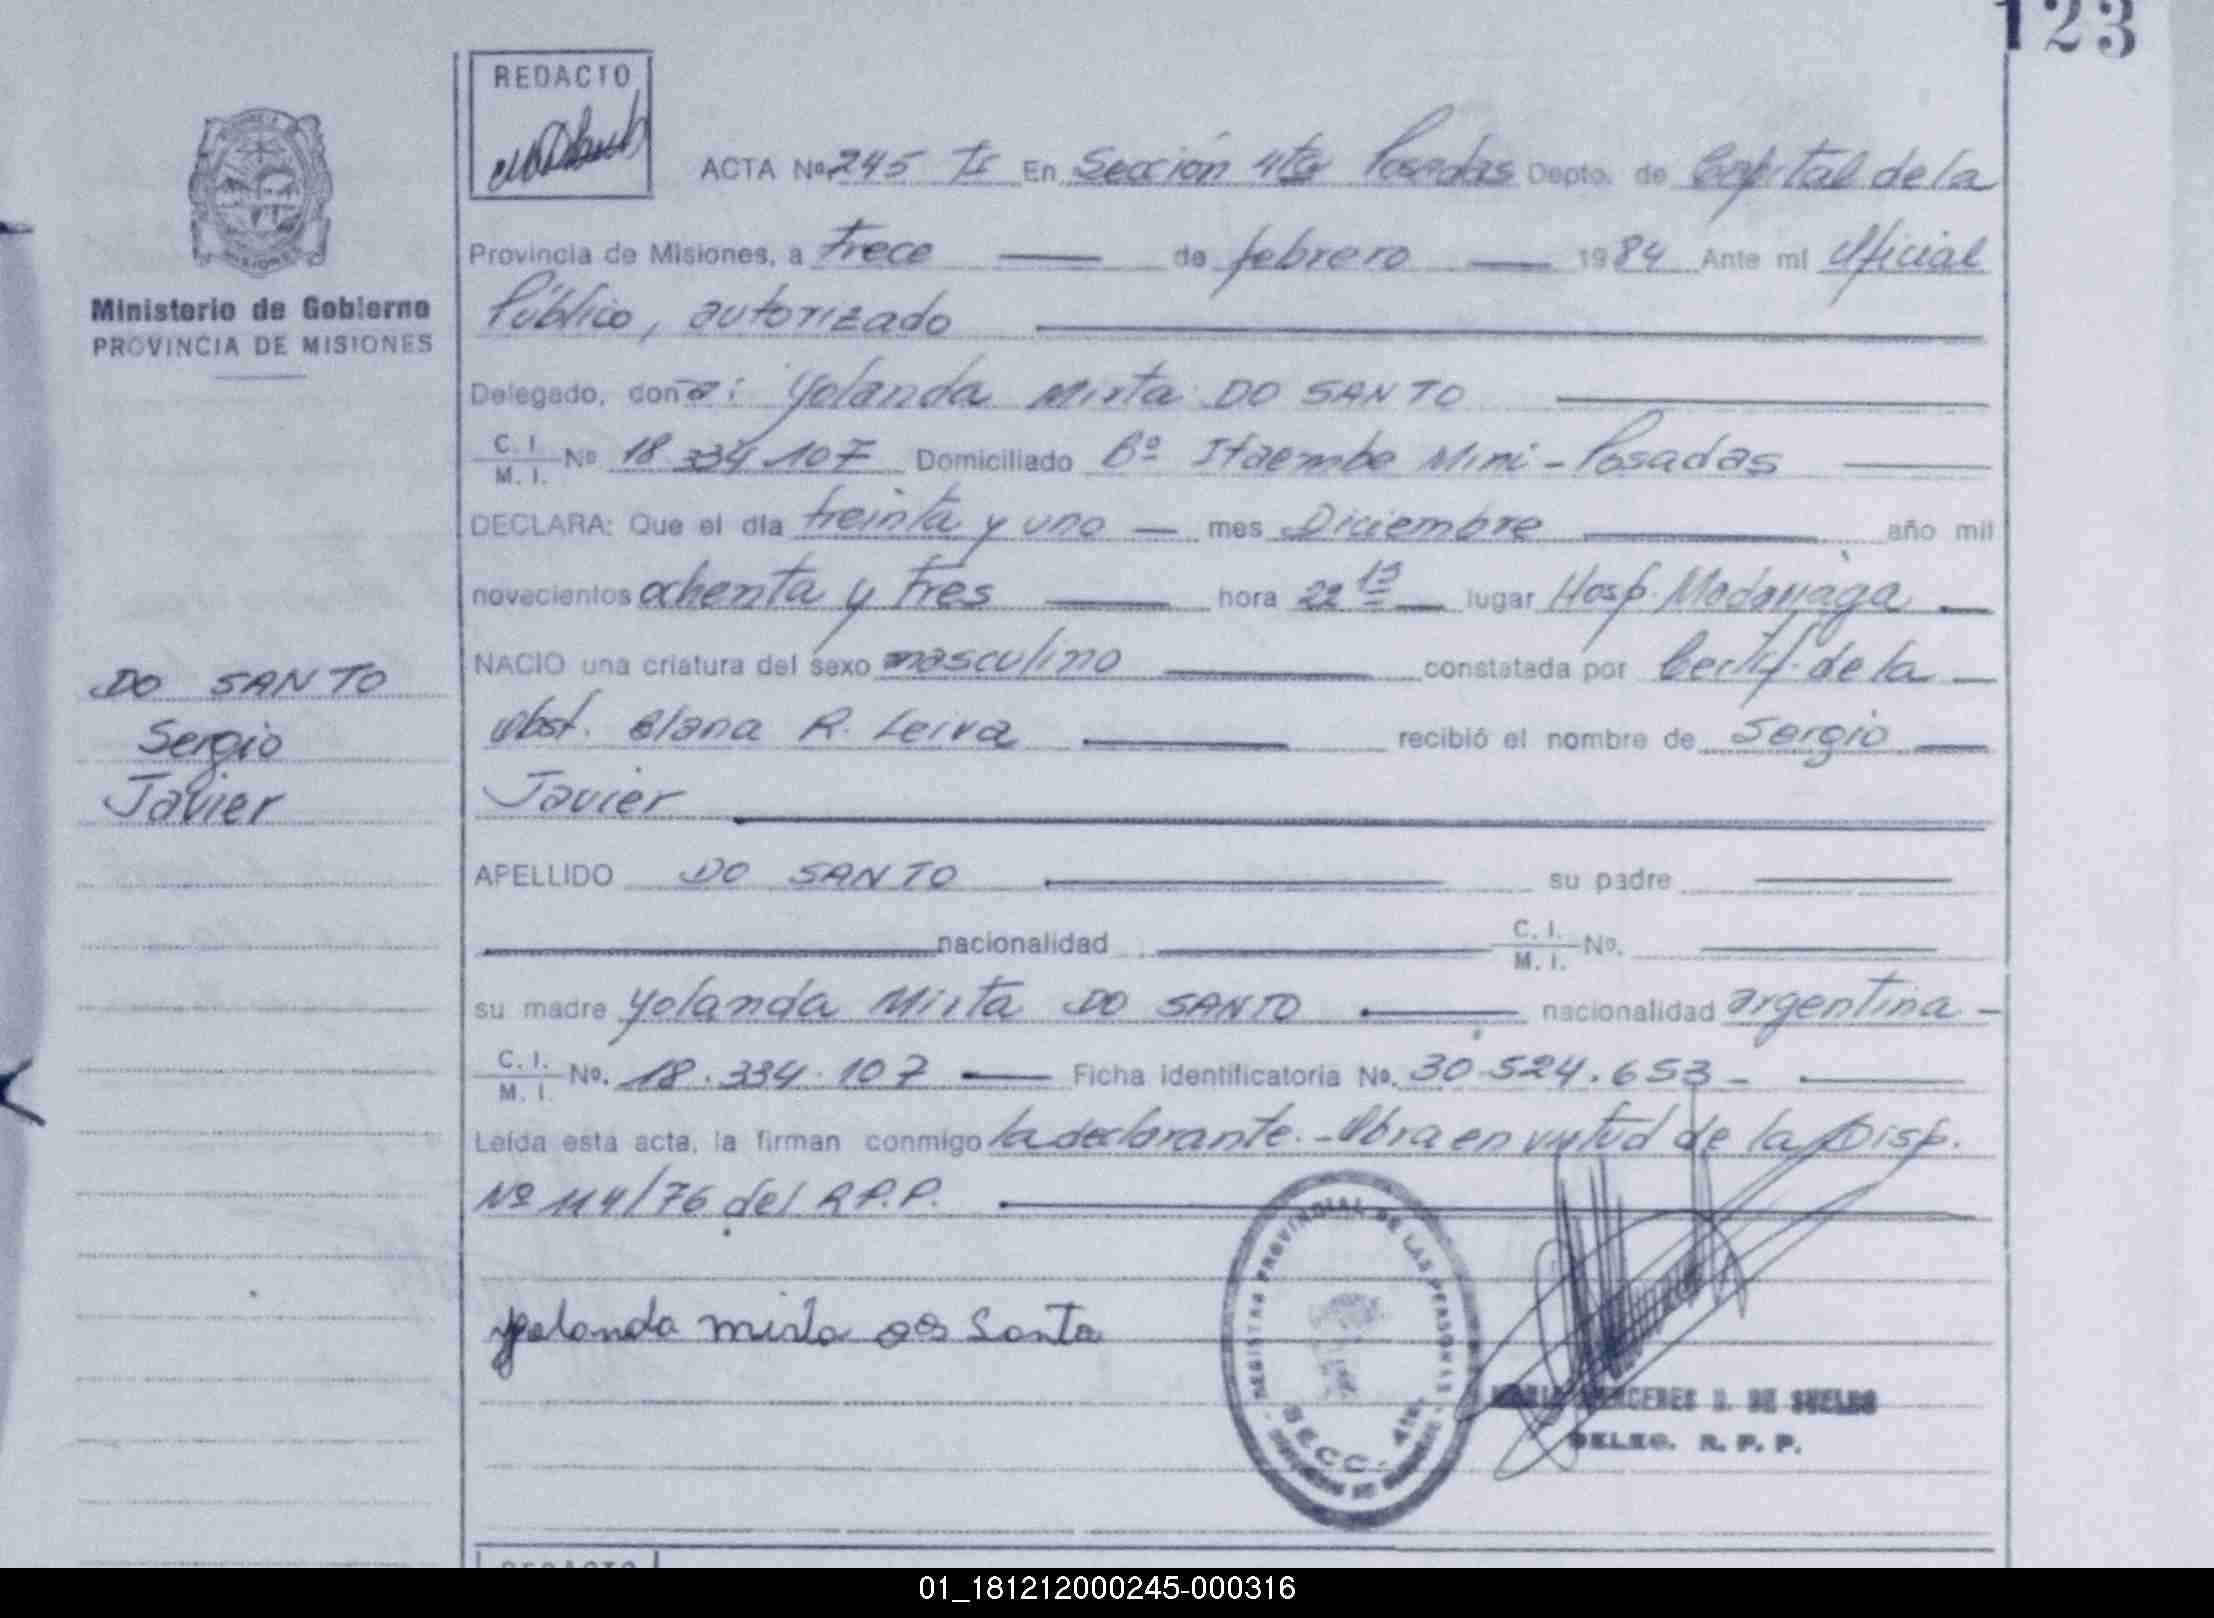 123
REDACTO
ACTA Nº 245 En Sección 4ta Posadas Depto. de Capital de la
Provincia de Misiones, a trece de febrero 1984 Ante mi Oficial
Público, autorizado
Ministerio de Gobierno
PROVINCIA DE MISIONES
Delegado, doña: Yolanda Mirta DO SANTO
C. I. M. I. Nº 18 334 107 Domiciliado Bº Itaembe Mini - Posadas
DECLARA: Que el día treinta y uno mes Diciembre año mil
novecientos ochenta y tres hora 22 15 lugar Hosp. Madariaga
NACIO una criatura del sexo masculino constatada por Certif. de la
Obst. Elana R. Leiva recibió el nombre de Sergio
Javier
DO SANTO
Sergio
Javier
APELLIDO DO SANTO su padre
nacionalidad C. I. M. I. Nº.
su madre Yolanda Mirta DO SANTO nacionalidad argentina -
C. I. M. I. Nº. 18.334.107 Ficha identificatoria Nº. 30.524.653 -
Leída esta acta, la firman conmigo la declarante. - Obra en virtud de la Disp.
Nº 114/76 del R.P.P.
Yolanda mirta do Santo
REGISTRO PROVINCIAL DE LAS PERSONAS
SECC. 4ta.
MERCEDES D. DE SUELDO
DELEG. R. P. P.
REDACTO
01_181212000245-000316